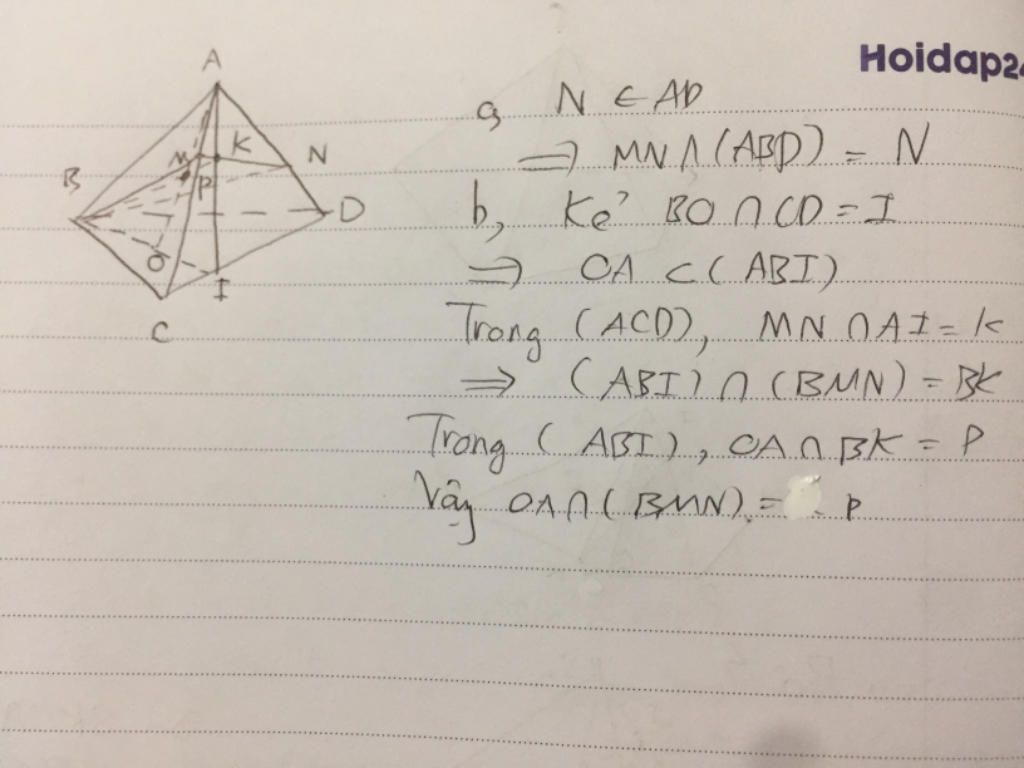 Hoidap24
A
B
M
K
N
P
D
O
I
C
a, N ∈ AD
=> MN ∩ (ABD) = N
b, Kẻ BO ∩ CD = I
=> OA ⊂ (ABI)
Trong (ACD), MN ∩ AI = K
=> (ABI) ∩ (BMN) = BK
Trong (ABI), OA ∩ BK = P
Vậy OA ∩ (BMN) = P